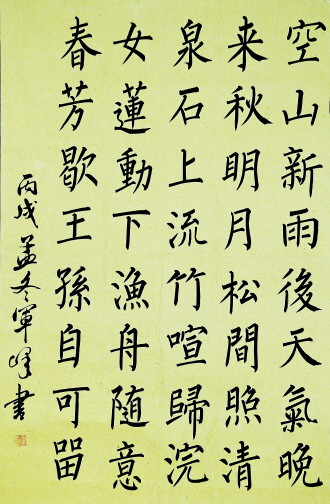 空山新雨後天氣晚
来秋明月松間照清
泉石上流竹喧歸浣
女蓮動下漁舟随意
春芳歇王孫自可留
丙戌孟冬軍峰書